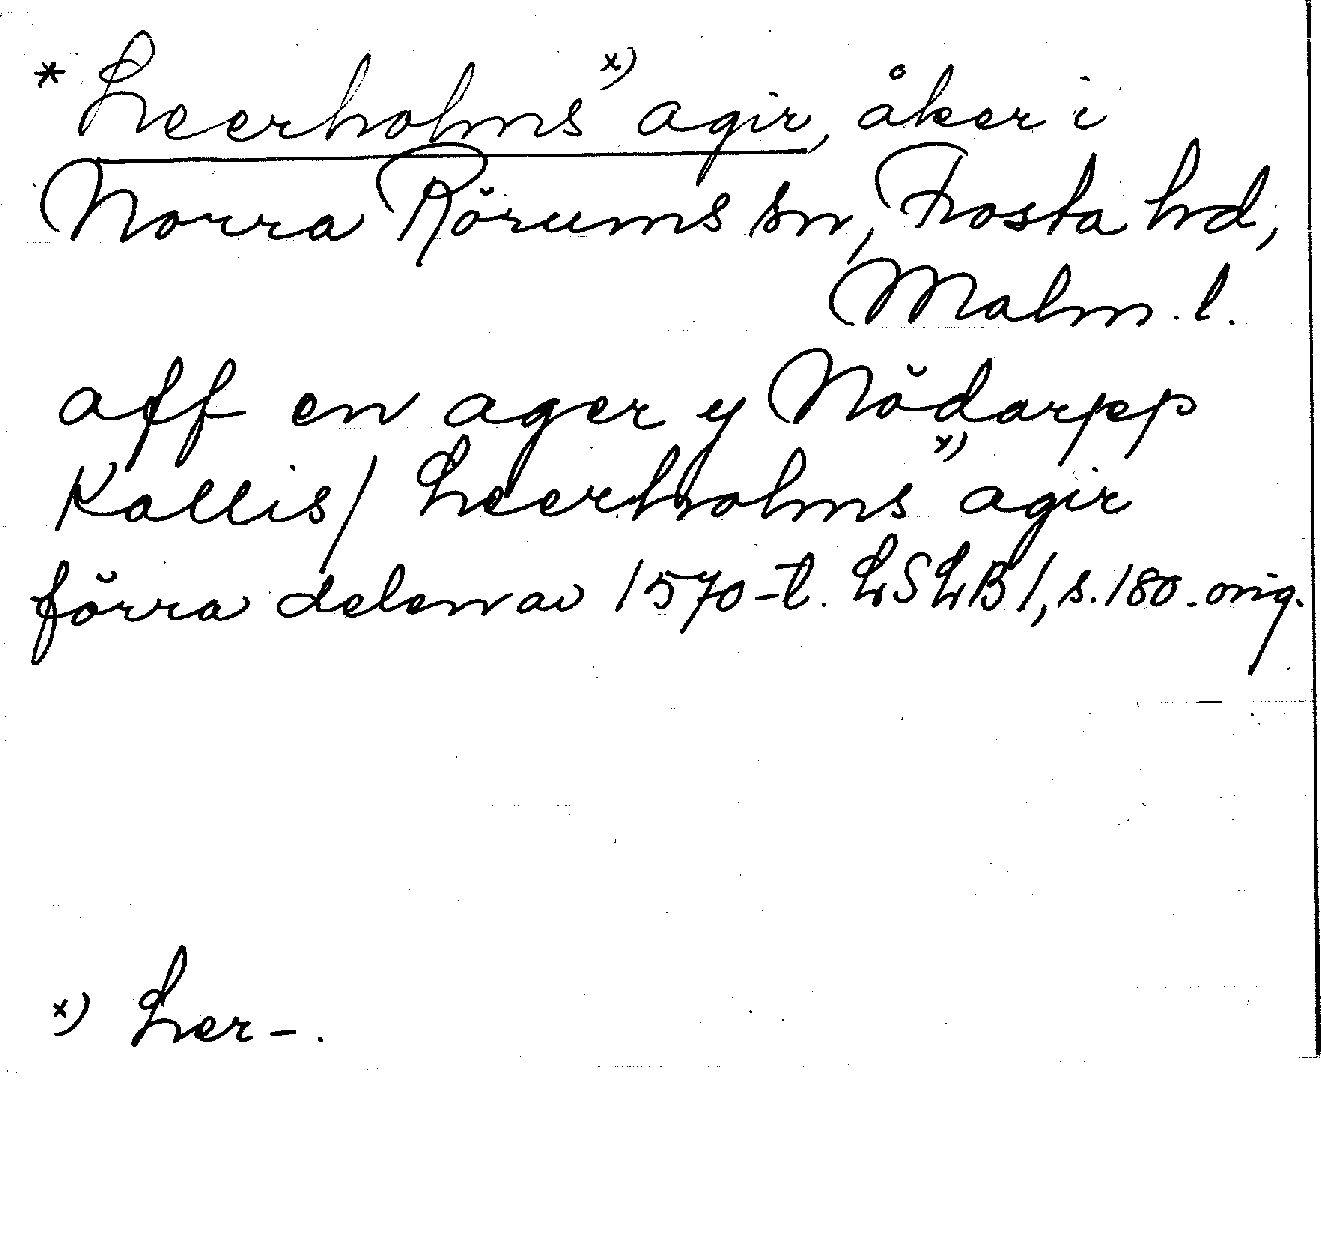 * Leerholms x) agir, åker i
Norra Rörums sn, Frosta hd,
Malm. l.
aff en ager y Nödarpp
Kallis/ Leerholms x) agir
förra delen av 1570-t. LSLB 1, s. 180. orig.
x) Ler-.